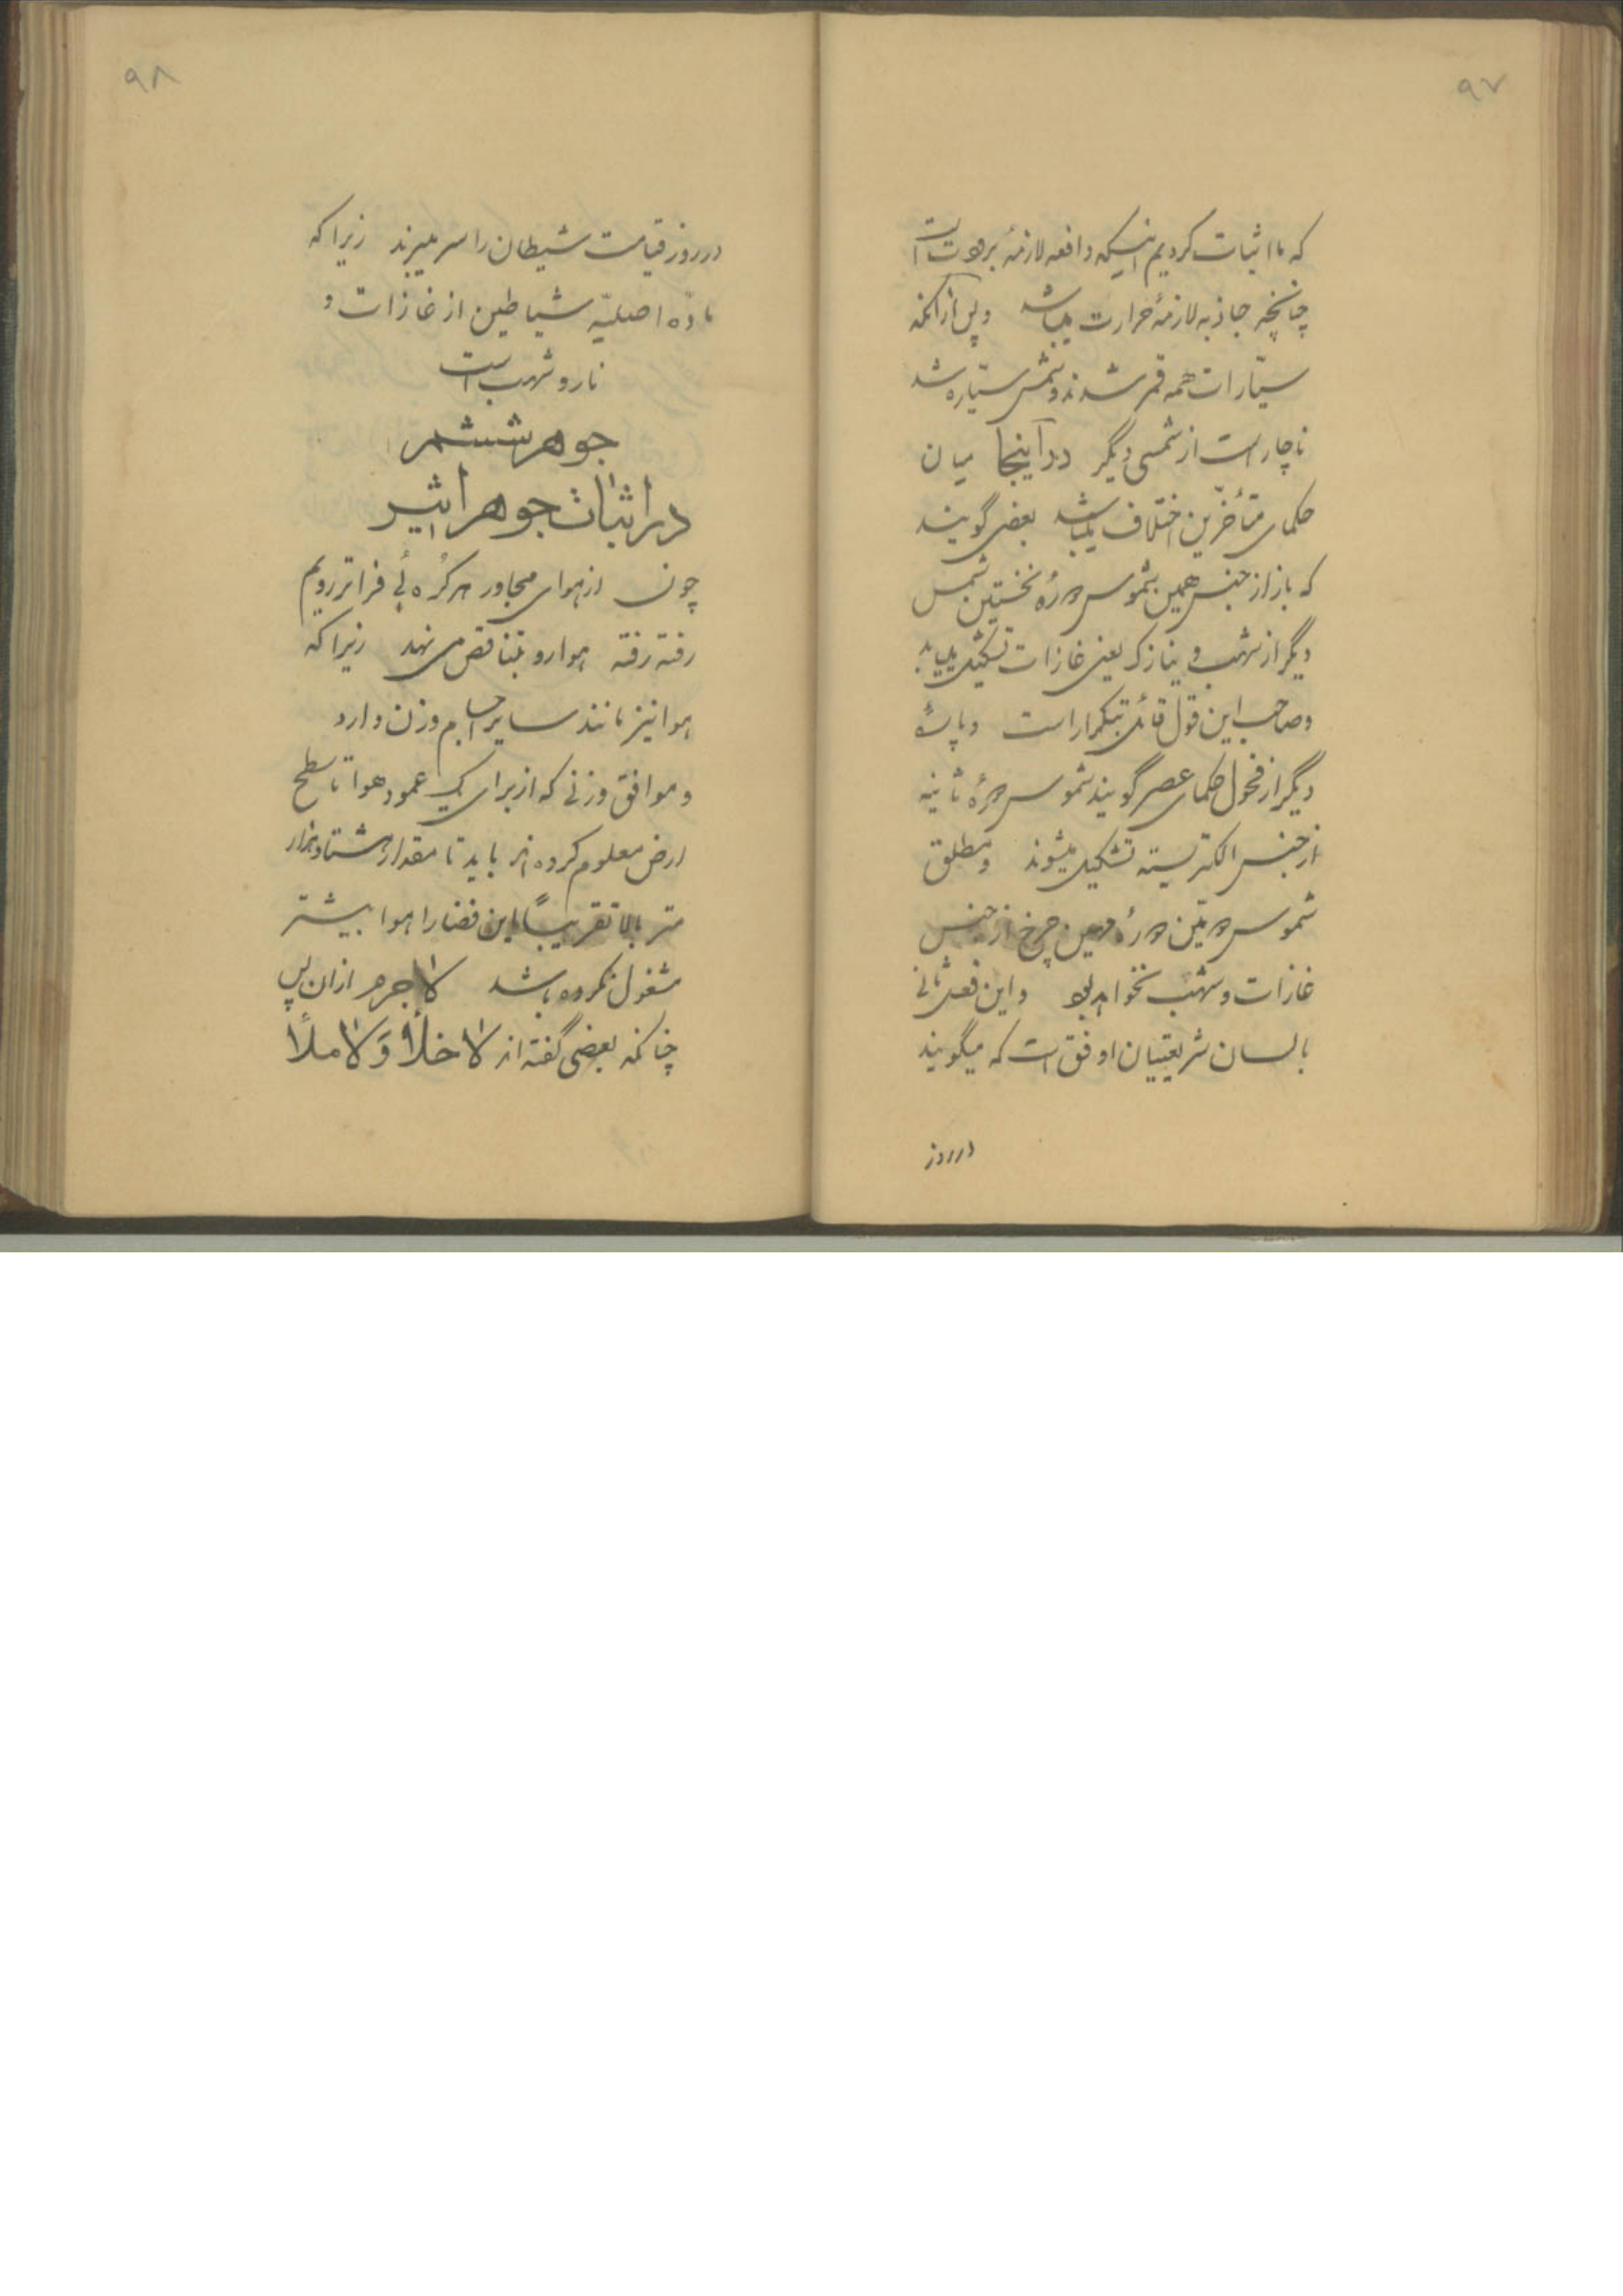 ۹۷
که ما اثبات کردیم اینکه دافعه لازمهٔ برودت است
چنانچه جاذبه لازمهٔ حرارت میباشد و پس از آنکه
سیّارات همه قمر شدند و شمس سیّاره شد
ناچار است از شمسی دیگر در اینجا میان
حکمای متأخّرین اختلاف میباشد بعضی گویند
که باز از جنس همین شموس دورهٔ نخستین شمس
دیگر از شهب و نیازک یعنی غازات تشکیل مییابد
و صاحب این قول قائل بتکرار است و پارهٔ
دیگر از فحول حکمای عصر گویند شموس دورهٔ ثانیه
از جنس الکتریسته تشکیل میشوند و مطلق
شموس دومین دورهٔ چرخ از جنس
غازات و شهب نخواهد بود و این قول ثانی
بالسان شریعتیان اوفق است که میگویند
در روز
۹۸
در روز قیامت شیطان را سر میبرند زیرا که
مادّه اصلیّه شیاطین از غازات و
نار و شهب است
جوهر ششم
در اثبات جوهر اثیر
چون از هوای مجاور هر کُره ئی فراتر رویم
رفته رفته هوا رو بتناقص می نهد زیرا که
هوا نیز مانند سایر اجسام وزن دارد
و موافق وزنی که از برای یک عمود هوا تا سطح
ارض معلوم کرده اند باید تا مقدار هشتاد هزار
متر بالا تقریباً این فضا را هوا بیشتر
مشغول نکرده باشد لاجرم ازان پس
چنانکه بعضی گفته اند لا خلأ و لا ملأ